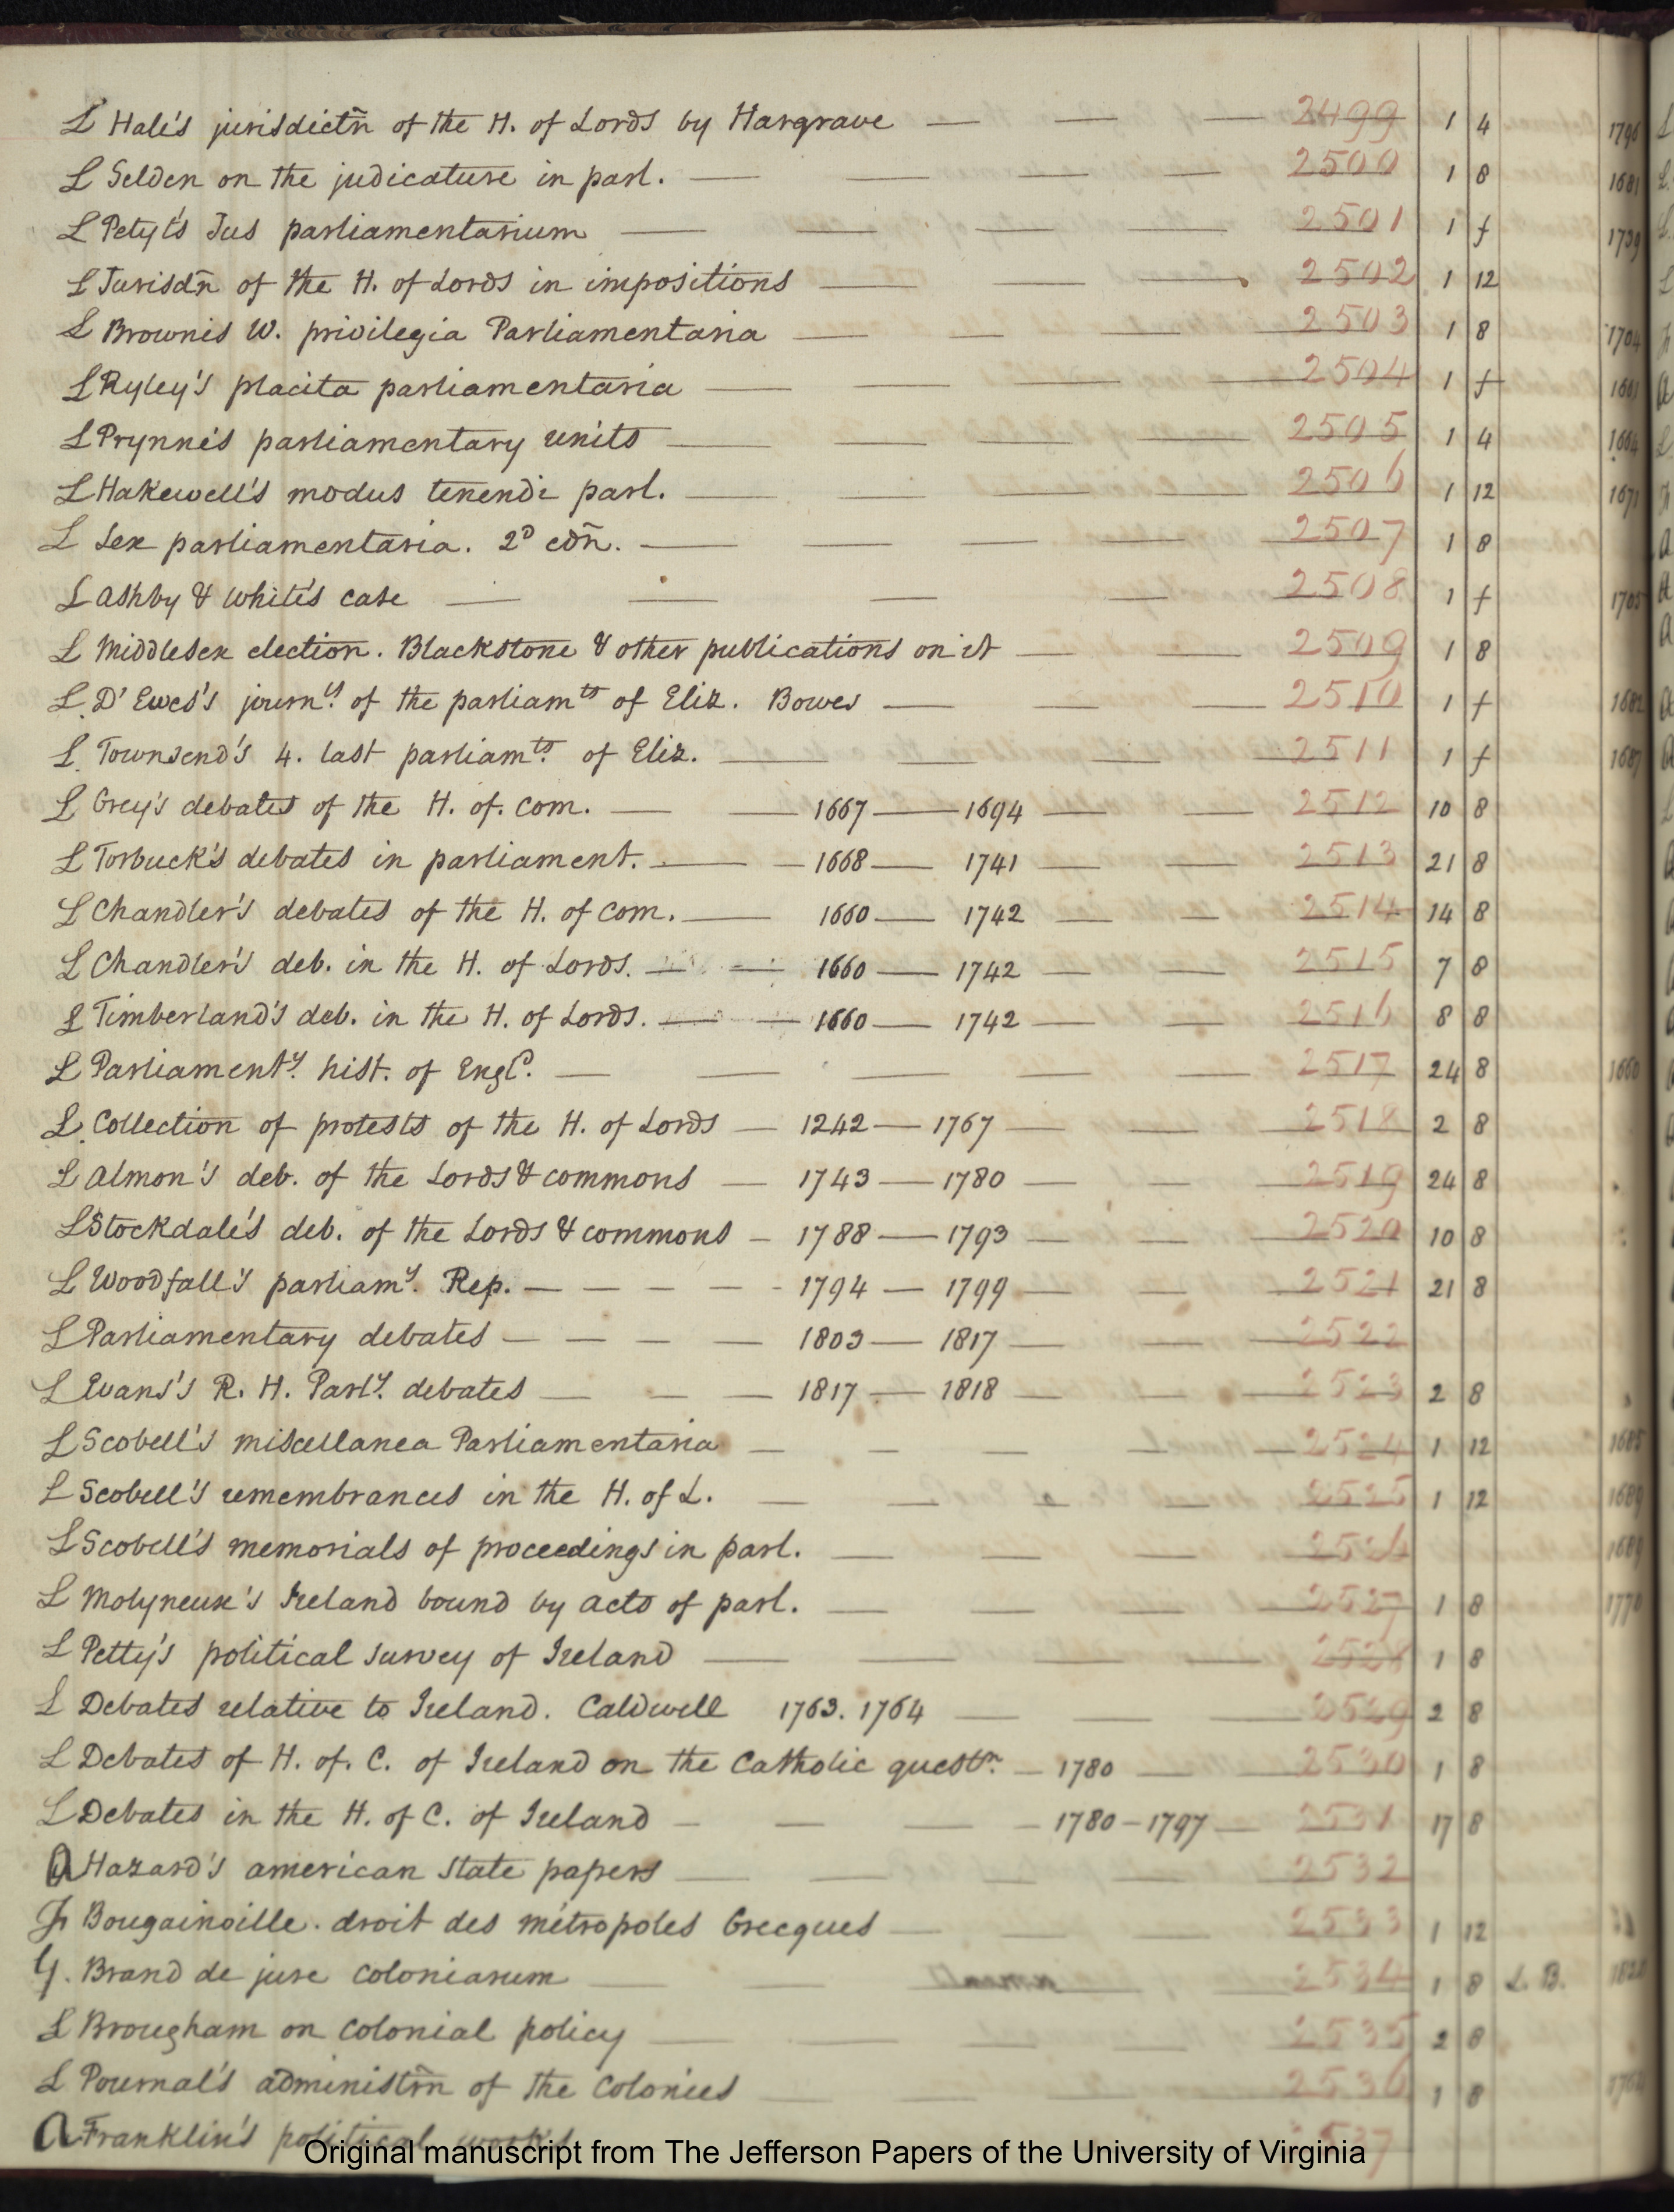 L Hale's jurisdictñ of the H. of Lords by Hargrave — — — 2499 1 4 1796
L Selden on the judicature in parl. — — — — 2500 1 8 1681
L Petyt's Jus parliamentarium — — — — 2501 1 f 1739
L Jurisdñ of the H. of Lords in impositions — — — 2502 1 12
L Browne's W. privilegia Parliamentaria — — — 2503 1 8 1704
L Ryley's placita parliamentaria — — — 2504 1 f 1661
L Prynne's parliamentary writs — — — — 2505 1 4 1664
L Hakewell's modus tenendi parl. — — — — 2506 1 12 1671
L Lex parliamentaria. 2d edñ. — — — — 2507 1 8
L Ashby & White's case — — — — 2508 1 f 1705
L Middlesex election. Blackstone & other publications on it — — 2509 1 8
L. D'Ewes's journls. of the parliamts of Eliz. Bowes — — — 2510 1 f 1682
L. Townsend's 4. last parliamts. of Eliz. — — — — 2511 1 f
L Grey's debates of the H. of. Com. — — 1667 — 1694 — — 2512 10 8
L Torbuck's debates in parliament. — — 1668 — 1741 — — 2513 21 8
L Chandler's debates of the H. of Com. — 1660 — 1742 — — 2514 14 8
L Chandler's deb. in the H. of Lords. — — 1660 — 1742 — — 2515 7 8
L Timberland's deb. in the H. of Lords. — — 1660 — 1742 — — 2516 8 8
L Parliamenty. hist. of Engld. — — — — — 2517 24 8 1660
L. Collection of protests of the H. of Lords — 1242 — 1767 — — 2518 2 8
L Almon's deb. of the Lords & commons — 1743 — 1780 — — 2519 24 8
L Stockdale's deb. of the Lords & commons — 1788 — 1793 — — 2520 10 8
L Woodfall's parliamy. Rep. — — — — - 1794 — 1799 — — 2521 21 8
L Parliamentary debates — — — — 1803 — 1817 — — 2522
L Evans's R. H. Parly. debates — — — 1817 — 1818 — — 2523 2 8
L Scobell's miscellanea Parliamentaria — — — — 2524 1 12 1685
L Scobell's remembrances in the H. of L. — — — — 2525 1 12 1689
L Scobell's memorials of proceedings in parl. — — — 2526 1689
L Molyneux's Ireland bound by acts of parl. — — — 2527 1 8 1770
L Petty's political survey of Ireland — — — — 2528 1 8
L Debates relative to Ireland. Caldwell 1763. 1764 — — — 2529 2 8
L Debates of H. of. C. of Ireland on the Catholic questn. — 1780 — — 2530 1 8
L Debates in the H. of C. of Ireland — — — — 1780 – 1797 — 2531 17 8
A Hazard's american State papers — — — — 2532
Fr Bougainville. droit des métropoles Grecques — — — 2533 1 12
G. Brand de jure coloniarum — — — 2534 1 8 L. B.
L Brougham on Colonial policy — — — — 2535 2 8
L Pournal's administrñ of the Colonies — — — 2536 1 8
A Franklin's political works
Original manuscript from The Jefferson Papers of the University of Virginia